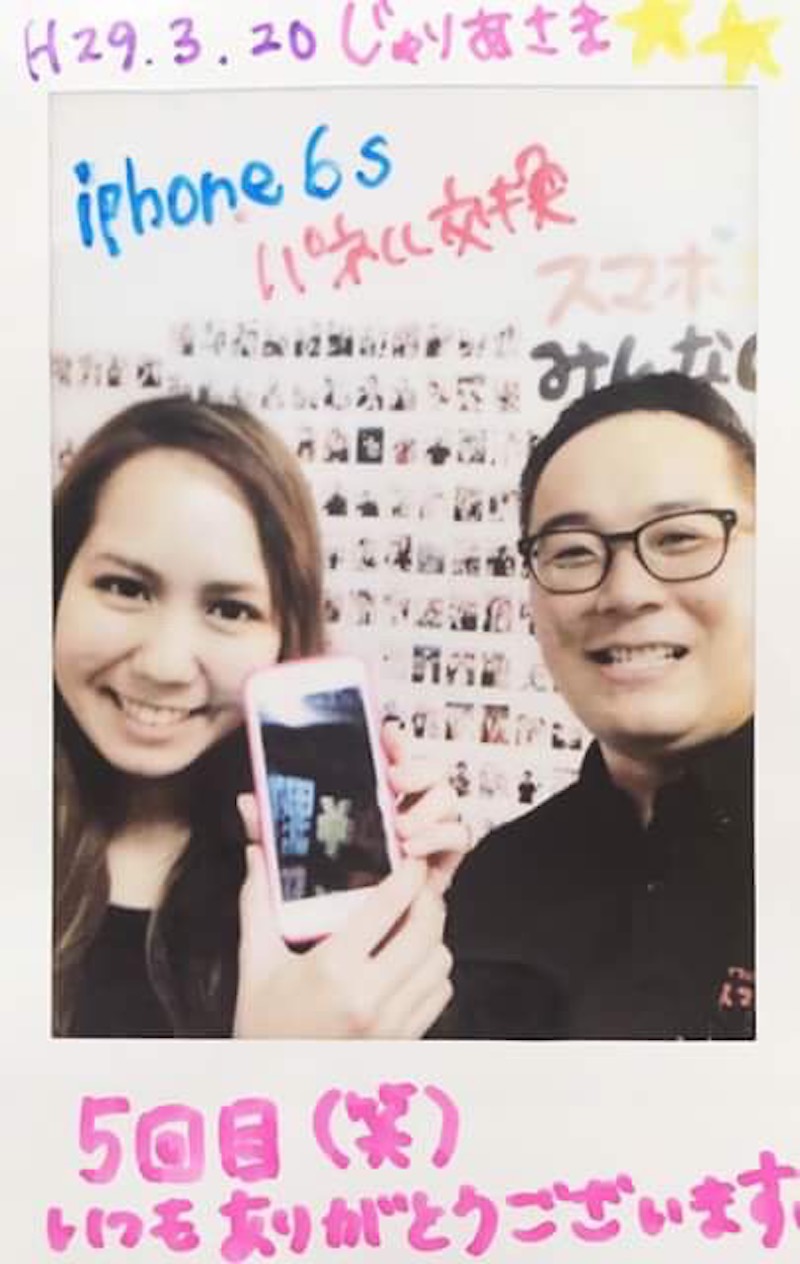 H29.3.20 じゅりあさま
iphone 6s
パネル交換
スマホ
みんなの
5回目(笑)
いつもありがとうございます。